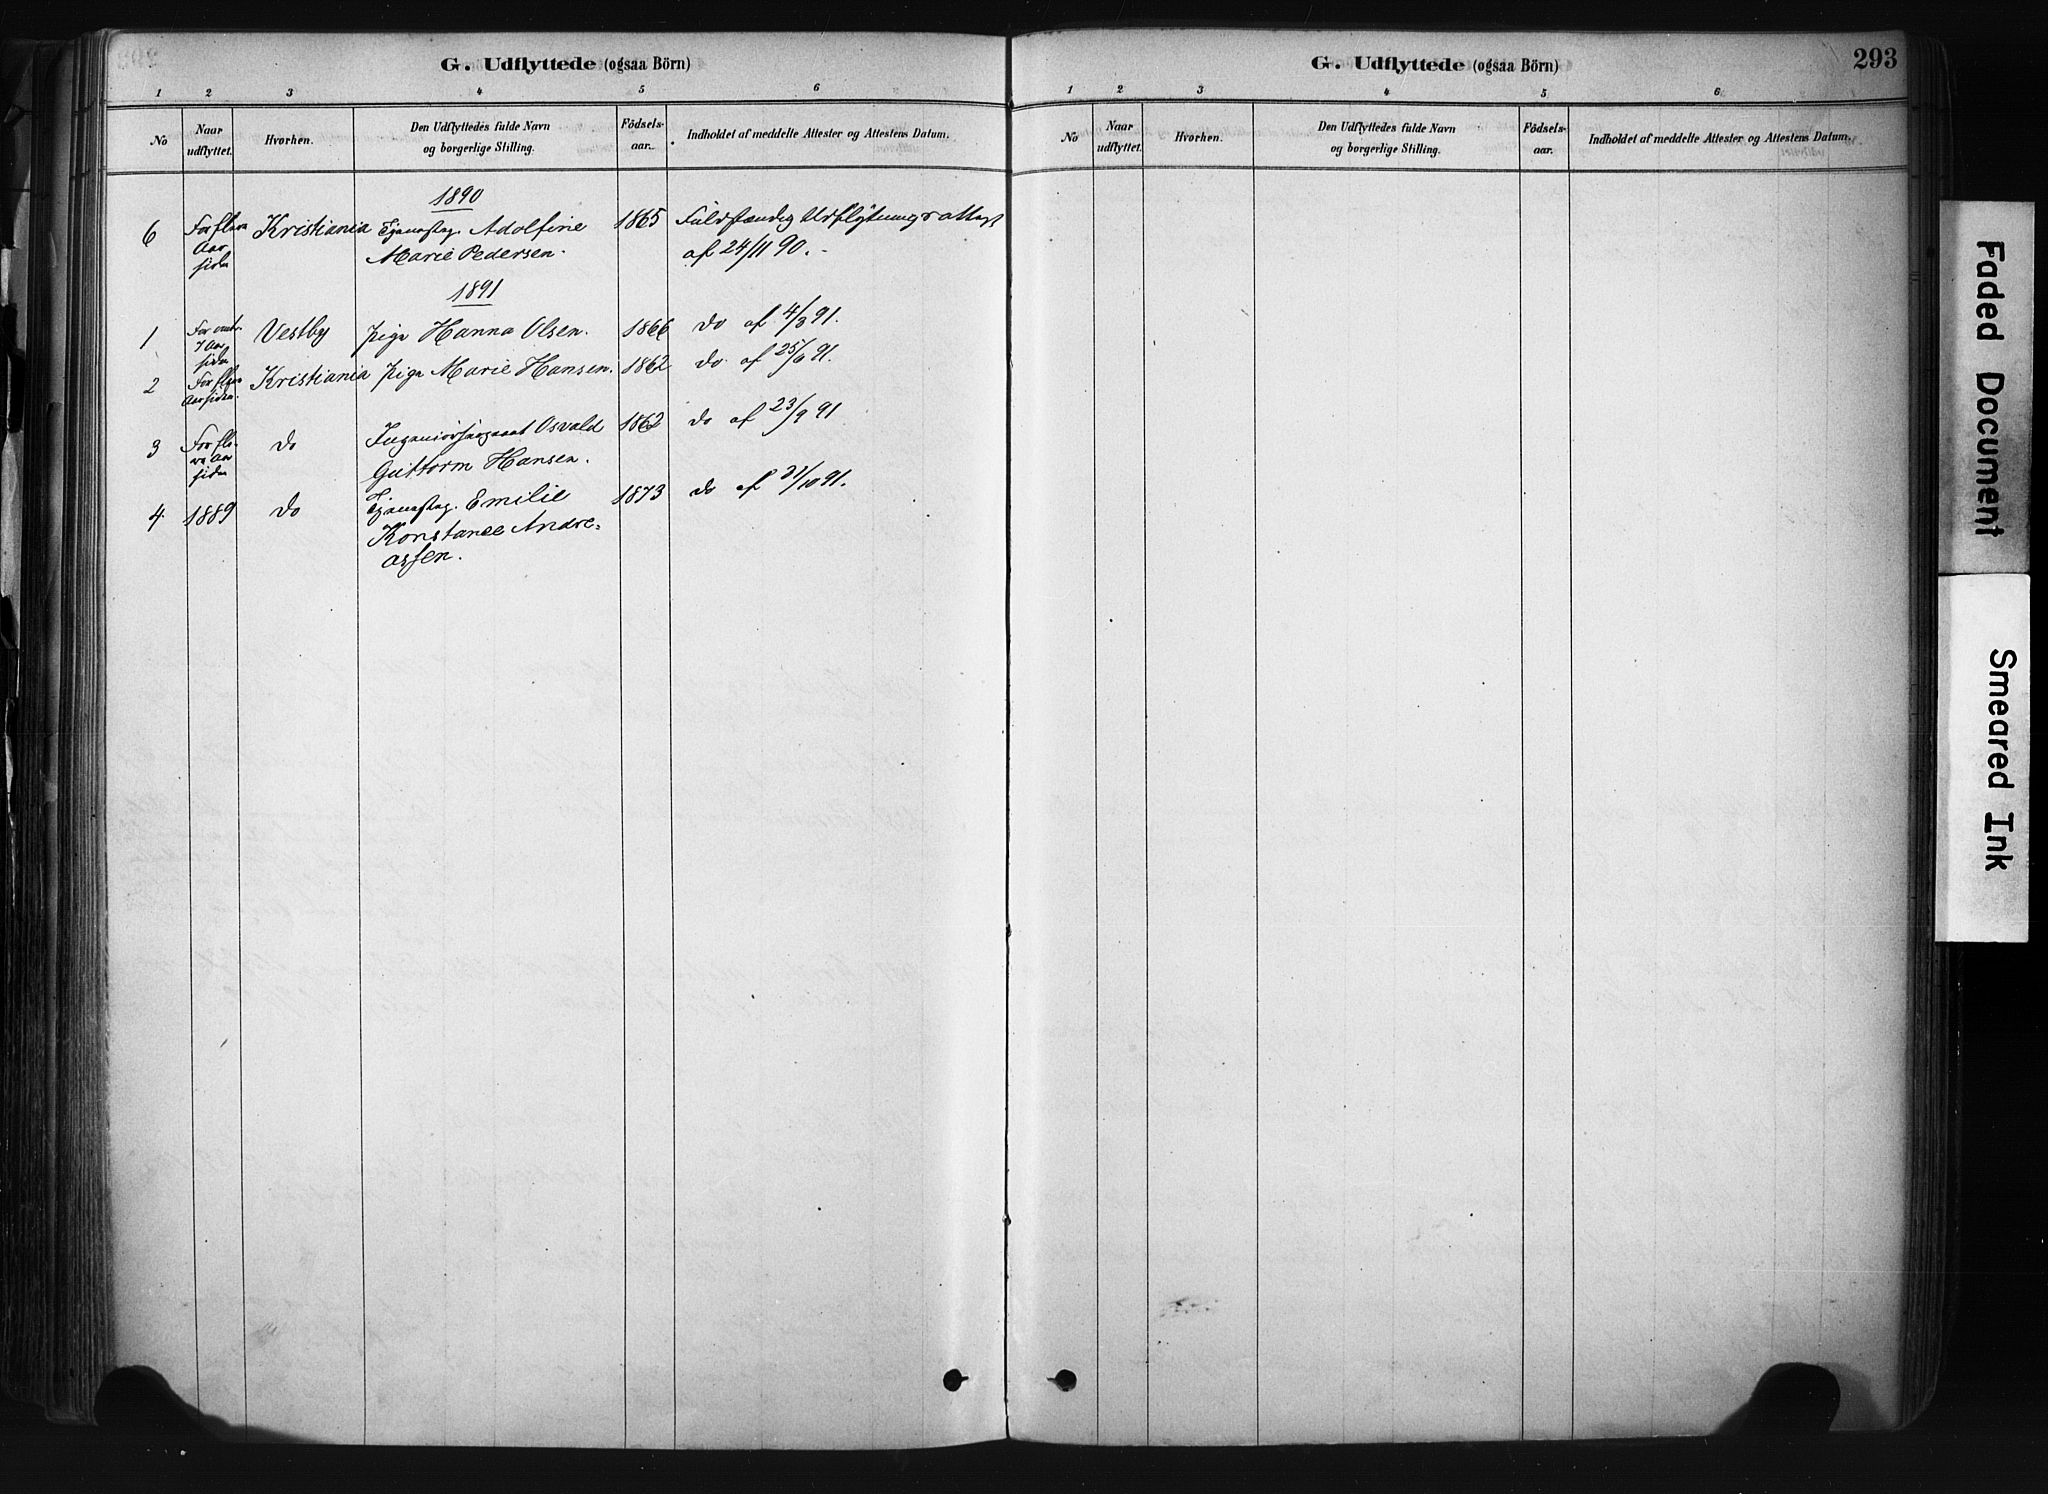 G. Udflyttede (ogsaa Börn)
1 2 3 4 5 6
No Naar udflyttet. Hvorhen. Den Udflyttedes fulde Navn og borgerlige Stilling. Födsels-aar. Indholdet af meddelte Attester og Attestens Datum.
1890
6 For flere Kristiania Tjenestpg. Adolfine 1865 Fuldstændig Udflytningsattest
Aar siden Marie Pedersen. af 24/11 90.
1891
1 For omtr. 7 Aar siden Vestby Pige Hanna Olsen. 1866 do af 4/3 91.
2 For flere Aar siden. Kristiania Pige Marie Hansen. 1862 do. af 25/6 91.
3 For fle- do Ingeniörsergeant Osvald 1862 do af 23/9 91
re Aar siden Guttorm Hansen.
4. 1889 do Tjenestpg. Emilie 1873 do af 31/10 91.
Konstance Andre-
assen.
G. Udflyttede (ogsaa Börn)
293
1 2 3 4 5 6
No Naar udflyttet. Hvorhen. Den Udflyttedes fulde Navn og borgerlige Stilling. Födsels-aar. Indholdet af meddelte Attester og Attestens Datum.
Faded Document
Smeared Ink